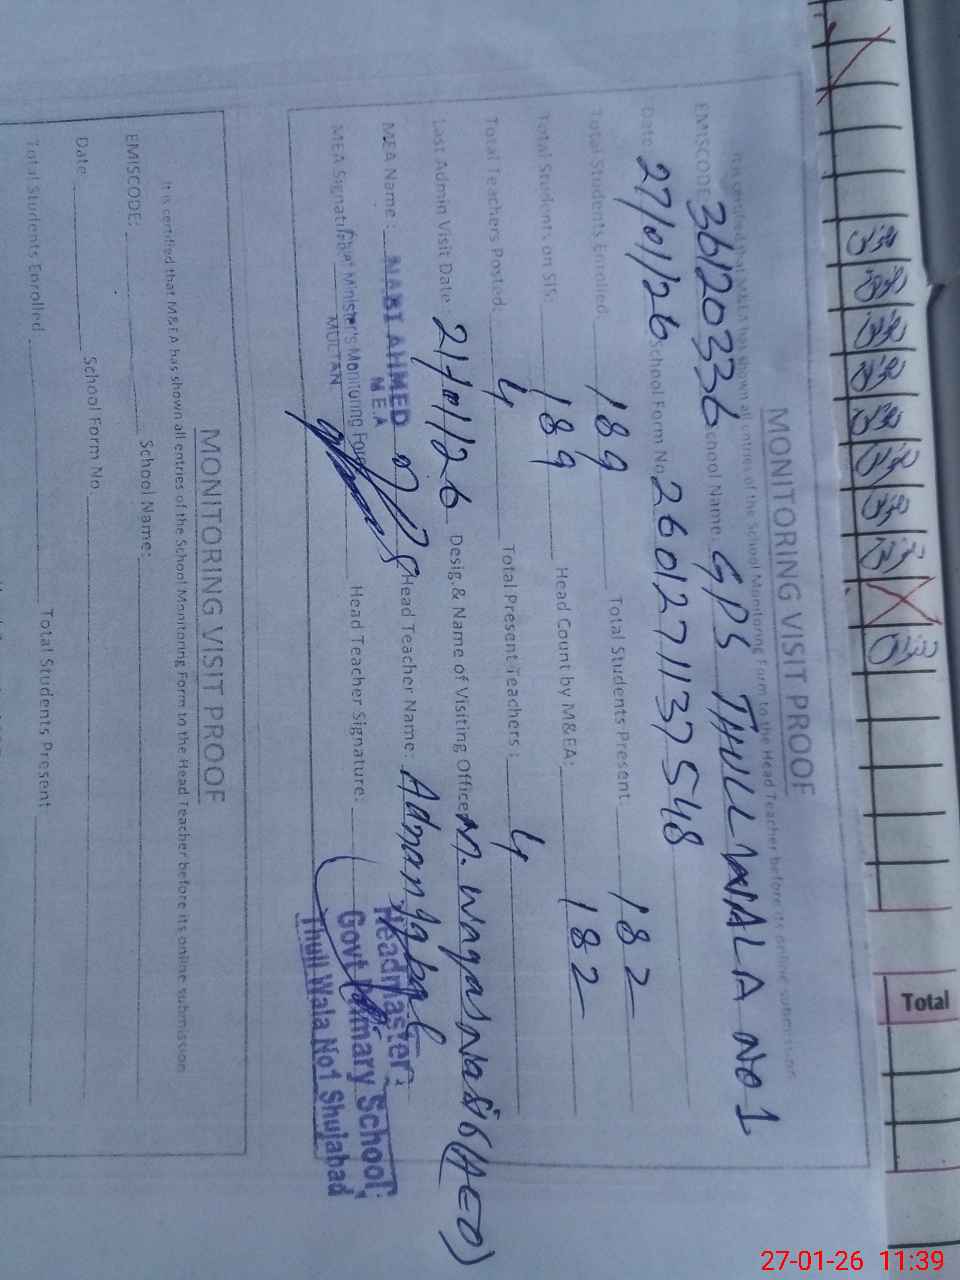 MONITORING VISIT PROOF
It is certified that M&EA has shown all entries of the School Monitoring Form to the Head Teacher before its online submission
EMISCODE: 36120336 School Name: GPS THULL WALA NO 1
Date 27/01/26 School Form No 2601271137548
Total Students Enrolled 189 Total Students Present 182
Total Students on SIS: 189 Head Count by M&EA: 182
Total Teachers Posted: 4 Total Present Teachers : 4
Last Admin Visit Date : 21/01/26 Desig.& Name of Visiting Officer M. Waqas Nasir (AEO)
MEA Name : NABI AHMED Head Teacher Name: Adnan Iqbal
M.E.A
MEA Signature Head Teacher Signature:
Chief Minister's Monitoring Force
MULTAN
Headmaster
Govt Primary School
Thull Wala No1 Shujabad
MONITORING VISIT PROOF
It is certified that M&EA has shown all entries of the School Monitoring Form to the Head Teacher before its online submission
EMISCODE: School Name:
Date School Form No
Total Students Enrolled Total Students Present
Total
27-01-26 11:39